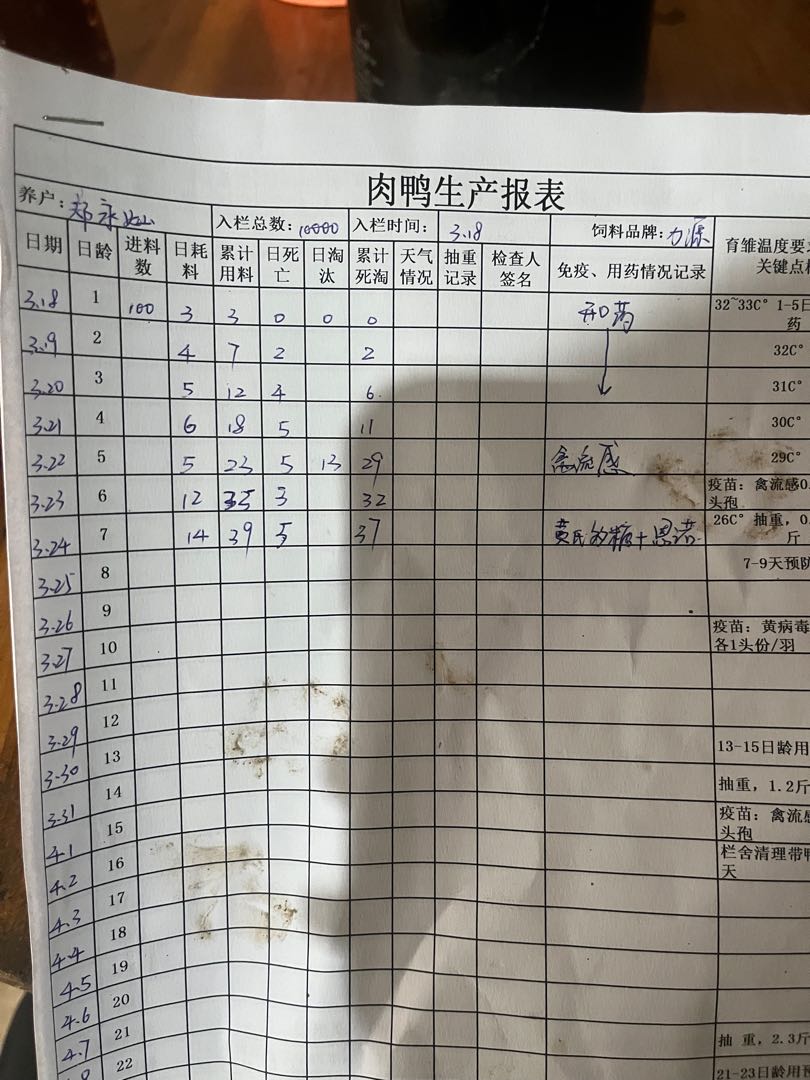 肉鸭生产报表
养户：郑永 入栏总数：10000 入栏时间：3.18 饲料品牌：力源
日期 日龄 进料数 日耗料 累计用料 日死亡 日淘汰 累计死淘 天气情况 抽重记录 检查人签名 免疫、用药情况记录 育雏温度要 关键点
3.18 1 100 3 3 0 0 0 开口药 32~33C° 1-5日 药
3.19 2 4 7 2 2 32C°
3.20 3 5 12 4 6. 31C°
3.21 4 6 18 5 11 30C°
3.22 5 5 23 5 13 29 禽流感 29C°
3.23 6 12 35 3 32 疫苗：禽流感0. 头孢
3.24 7 14 39 5 37 黄氏多糖+恩诺 26C° 抽重，0. 斤
3.25 8 7-9天预防
3.26 9
3.27 10 疫苗：黄病毒 各1头份/羽
3.28 11
3.29 12
3.30 13 13-15日龄用
3.31 14 抽重，1.2斤
4.1 15 疫苗：禽流感 头孢
4.2 16 栏舍清理带鸭 天
4.3 17
4.4 18
4.5 19
4.6 20
4.7 21 抽 重，2.3斤
22 21-23日龄用